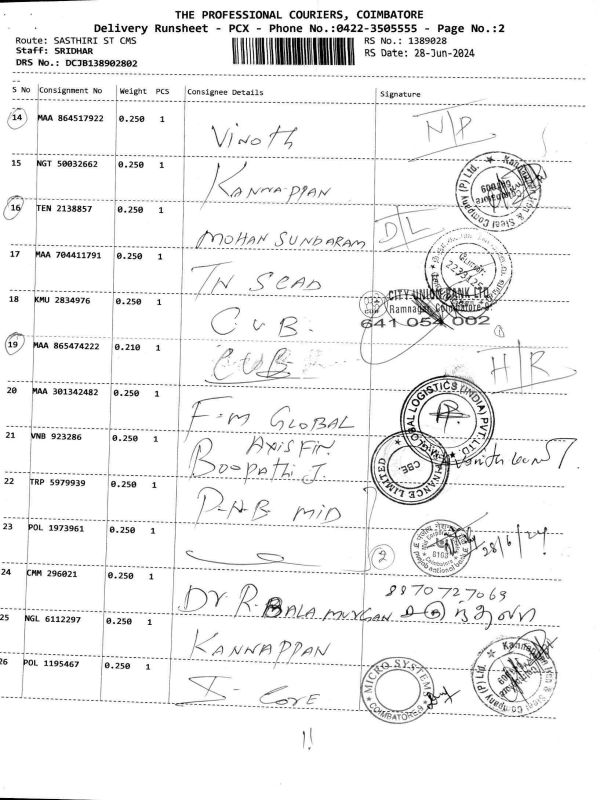 THE PROFESSIONAL COURIERS, COIMBATORE
Delivery Runsheet - PCX - Phone No.:0422-3505555 - Page No.:2
Route: SASTHIRI ST CMS
RS No.: 1389028
Staff: SRIDHAR
RS Date: 28-Jun-2024
DRS No.: DCJB138902802
S No Consignment No Weight PCS Consignee Details Signature
14 MAA 864517922 0.250 1 Vinoth N/P
15 NGT 50032662 0.250 1 KANNAPPAN
16 TEN 2138857 0.250 1 MOHAN SUNDARAM D/L
17 MAA 704411791 0.250 1 TN SCAD
CITY UNION BANK LTD
Ramnagar, Coimbatore
18 KMU 2834976 0.250 1 C.U.B. 641 054 002
19 MAA 865474222 0.210 1 CUB H/R
20 MAA 301342482 0.250 1 F.M GLOBAL
GLOBAL LOGISTICS (INDIA) PVT. LTD
21 VNB 923286 0.250 1 AXIS FIN
Boopathi J
CBE.
FINANCE LIMITED
22 TRP 5979939 0.250 1 P-N-B MID
23 POL 1973961 0.250 1 2 28/6/24
24 CMM 296021 0.250 1 Dr. R. BALA MURUGAN 8870727069
25 NGL 6112297 0.250 1 KANNAPPAN
26 POL 1195467 0.250 1 I-CORE
MICRO SYSTEM
COIMBATORE